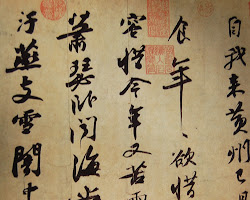 自我来黄州已
食年〻欲惜
容惜今年又苦雨
蕭瑟卧聞海
汙燕支雪闇中